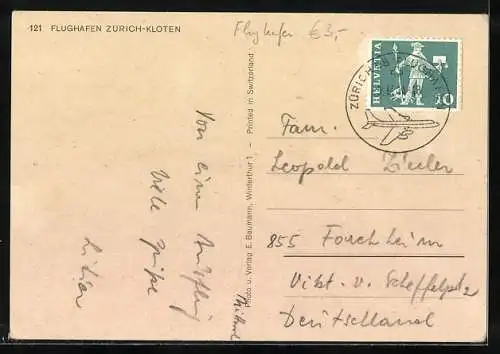 121 FLUGHAFEN ZÜRICH-KLOTEN
Flughafen €3,-
HELVETIA
10
ZÜRICH
Photo u. Verlag E. Baumann, Winterthur 1 - Printed in Switzerland
Von einem Ausflug
viele Grüße
Fam.
Leopold
855 Forchheim
Vikt. v. Scheffelpl. 2
Deutschland